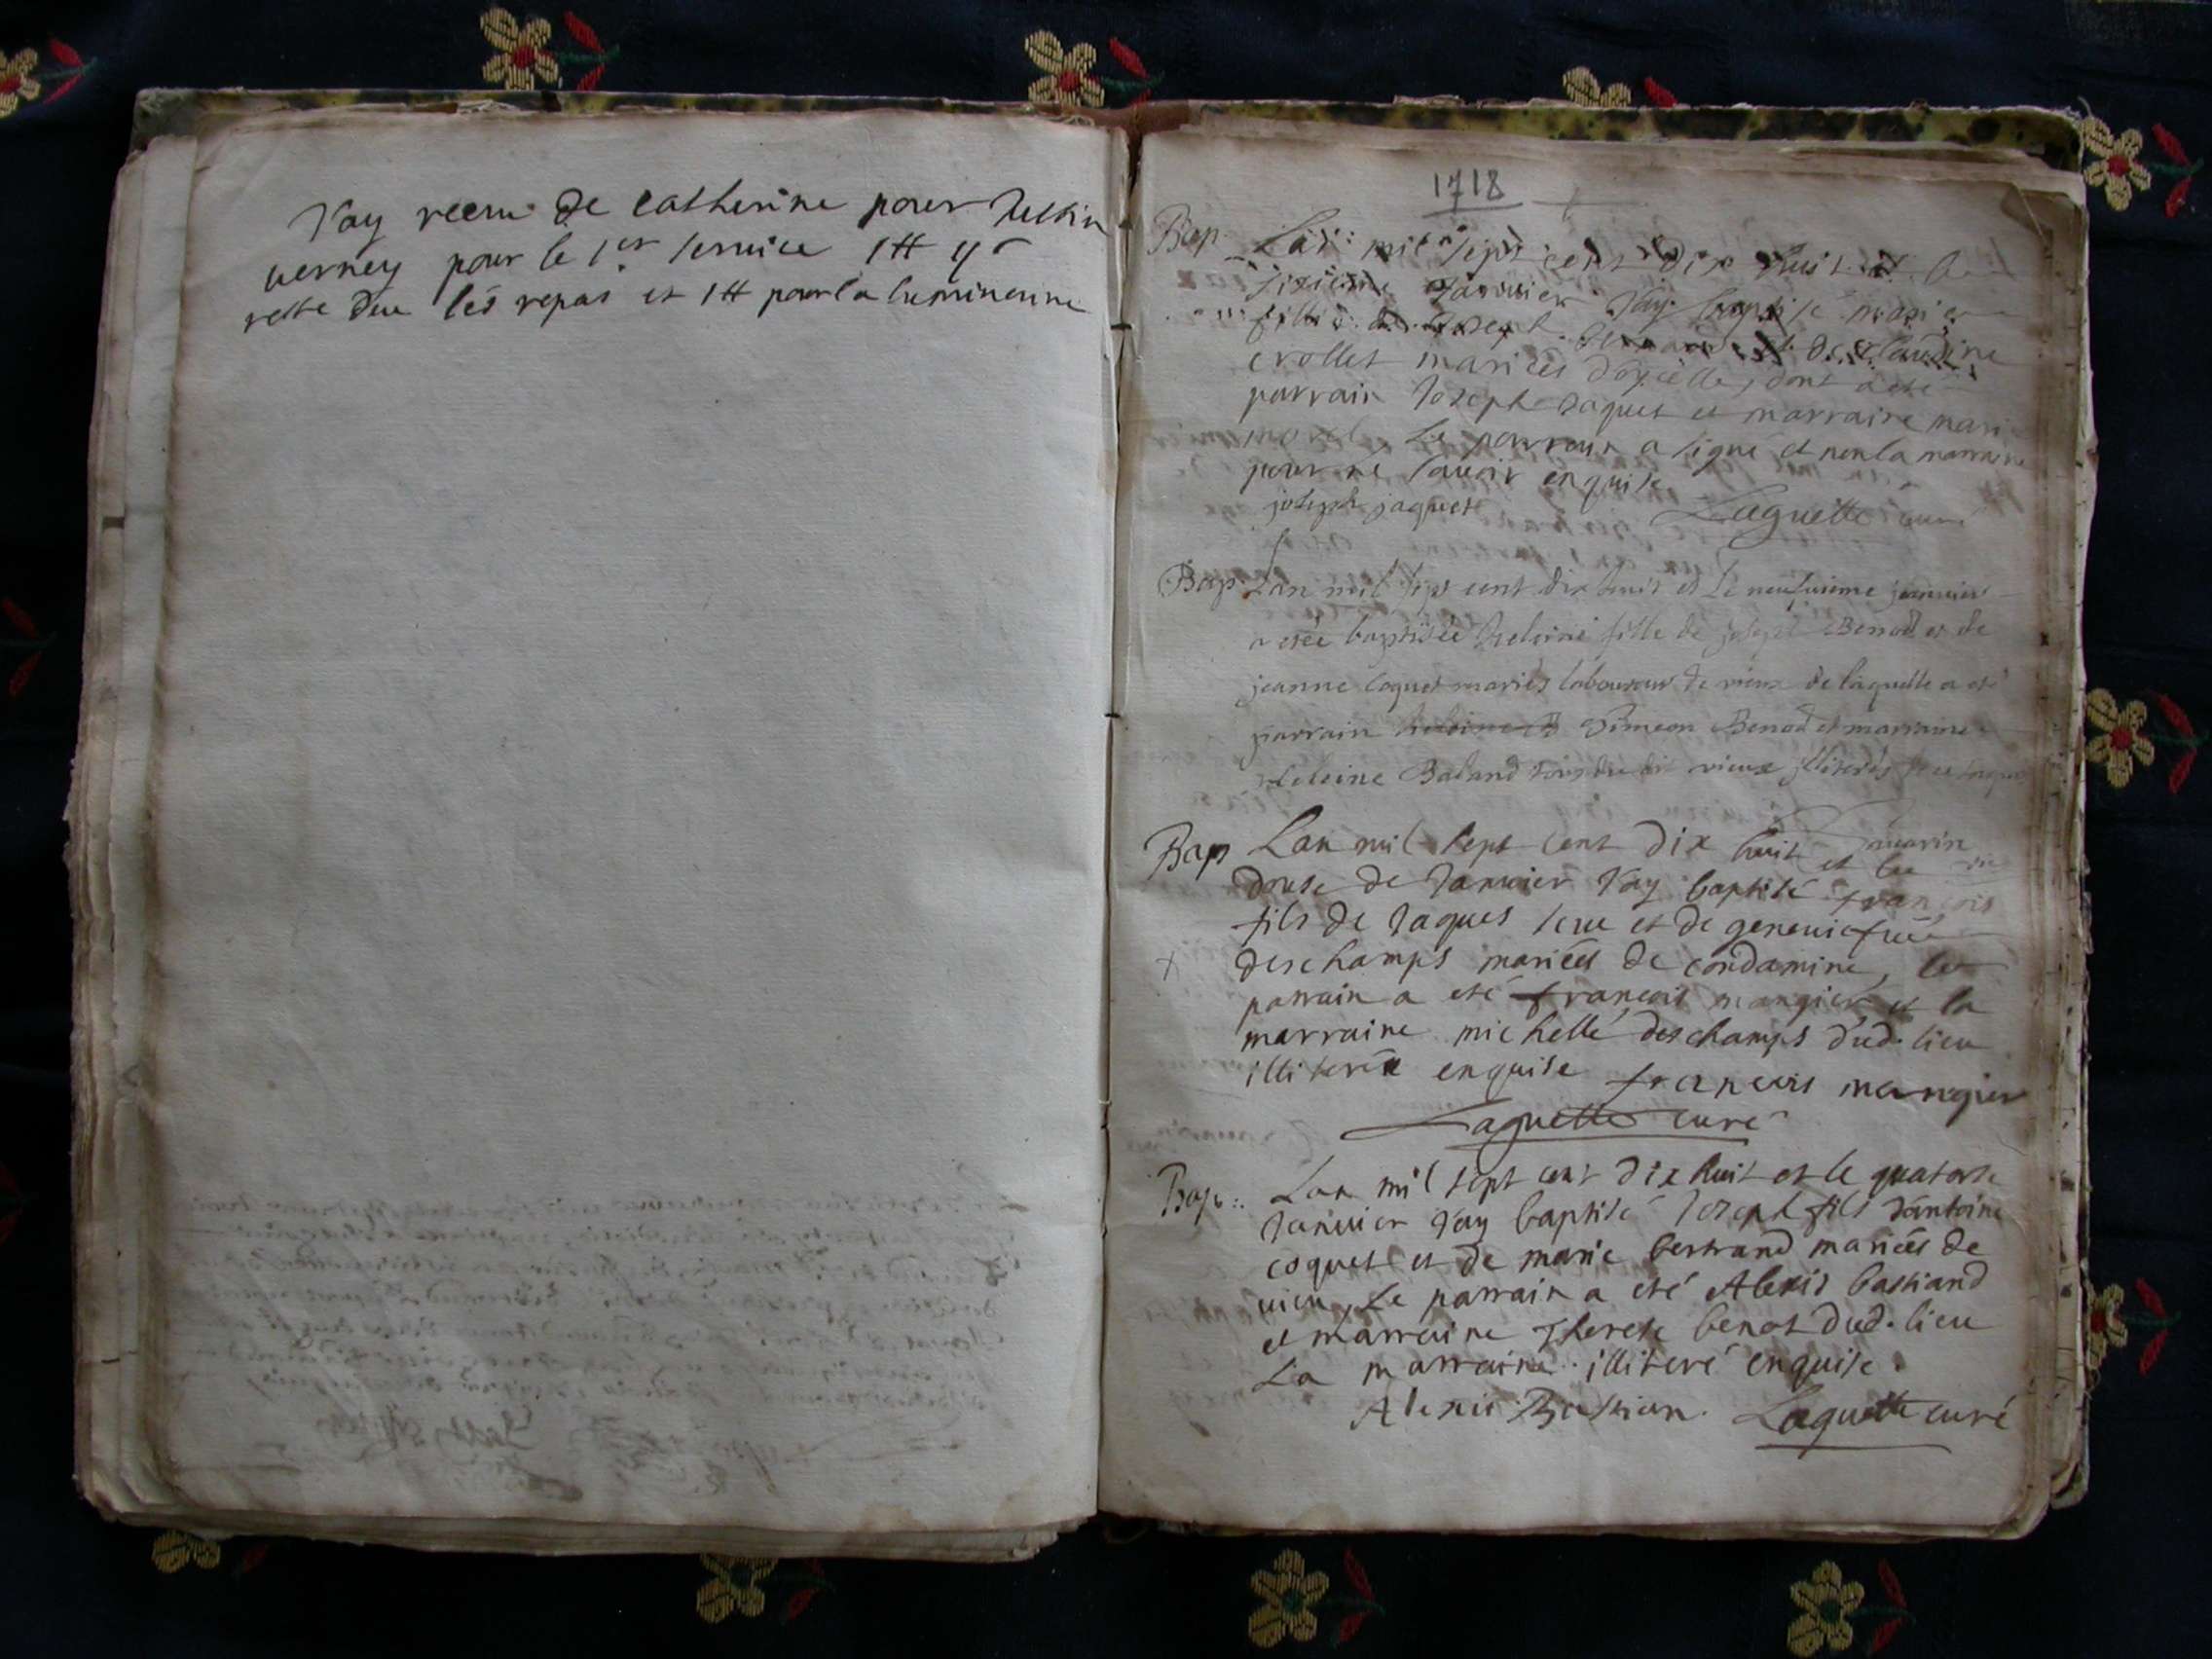 J'ay receu de catherine pour
verney pour le 1er service 1 ₶
reste deu les repas et 1 ₶ pour la
1718
Bap Lan mil sept cent dix huit et le
sixieme janvier J'ay baptisé marie
fille de Joseph et de claudine
crollet mariées d'oyselle, dont a eté
parrain Joseph Jaquet et marraine marie
morel Le parrain a signé et non la marraine
pour ne scavoir enquise
joseph jaquet Laguette curé
Bap. Lan mil sept cent dix huit et Le neufvieme janvier
a etée baptisée heleine fille de joseph Benod et de
jeanne Coquet mariés laboureur de vieux de laquelle a eté
parrain Simeon Benod et marraine
heleine Baland tous du dit vieux illiterés
Bap Lan mil sept cent dix huit et le
douse de Janvier J'ay baptisé françois
fils de Jaques et de geneviefve
deschamps mariées de condamine, le
parrain a eté françois mangier et la
marraine michelle deschamps dud. lieu
illiterée enquise françois mangier
Laguette curé
Bap.. Lan mil sept cent dix huit et le quatorse
Janvier J'ay baptisé Joseph fils d'antoine
coquet et de marie bertrand mariées de
vieu, Le parrain a eté Alexis bastiand
et marraine Therese benot dud. lieu
La marraine illiteré enquise.
Alexis Bastian. Laguette curé